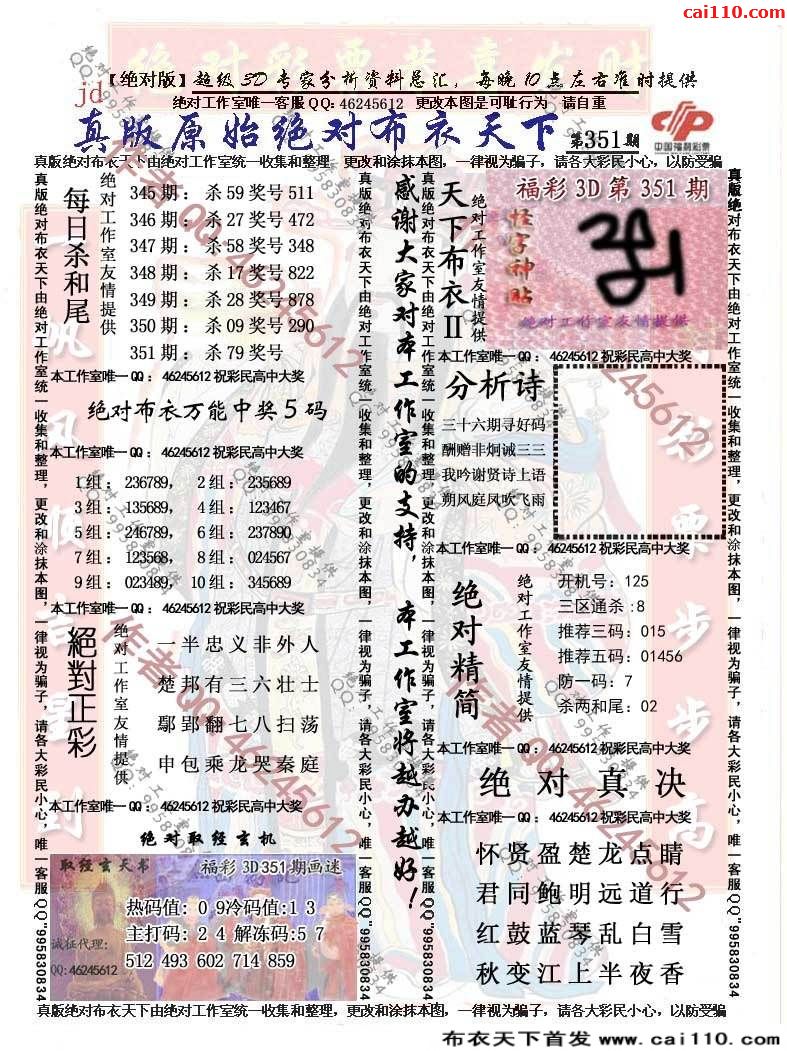 cai110.com
绝对彩票恭喜发财
【绝对版】超级3D专家分析资料总汇，每晚10点左右准时提供
jd
绝对工作室唯一客服QQ:46245612 更改本图是可耻行为 请自重
真版原始绝对布衣天下 第351期
中国福利彩票
真版绝对布衣天下由绝对工作室统一收集和整理，更改和涂抹本图，一律视为骗子，请各大彩民小心，以防受骗
真版绝对布衣天下由绝对工作室统一收集和整理，更改和涂抹本图，一律视为骗子，请各大彩民小心，唯一客服QQ"995830834
每日杀和尾
绝对工作室友情提供
345期：杀59奖号511
346期：杀27奖号472
347期：杀58奖号348
348期：杀17奖号822
349期：杀28奖号878
350期：杀09奖号290
351期：杀79奖号
本工作室唯一QQ：46245612祝彩民高中大奖
绝对布衣万能中奖5码
本工作室唯一QQ：46245612祝彩民高中大奖
1组：236789， 2组：235689
3组：135689， 4组：123467
5组：246789， 6组：237890
7组：123568， 8组：024567
9组：023489， 10组：345689
本工作室唯一QQ：46245612祝彩民高中大奖
絕對正彩
绝对工作室友情提供
一半忠义非外人
楚邦有三六壮士
鄢郢翻七八扫荡
申包乘龙哭秦庭
本工作室唯一QQ：46245612祝彩民高中大奖
绝对取经玄机
取经玄天书
福彩3D351期画迷
热码值：0 9冷码值:1 3
主打码：2 4解冻码:5 7
512 493 602 714 859
诚征代理:
QQ:46245612
真版绝对布衣天下由绝对工作室统一收集和整理，更改和涂抹本图，一律视为骗子，请各大彩民小心，唯一客服QQ"995830834
感谢大家对本工作室的支持，本工作室将越办越好！
真版绝对布衣天下由绝对工作室统一收集和整理，更改和涂抹本图，一律视为骗子，请各大彩民小心，唯一客服QQ"995830834
天下布衣II
绝对工作室友情提供
福彩3D第351期
怪字神贴
绝对工作室友情提供
本工作室唯一QQ：46245612祝彩民高中大奖
分析诗
三十六期寻好码
酬赠非炯诫三三
我吟谢贤诗上语
朔风庭凤吹飞雨
本工作室唯一QQ：46245612祝彩民高中大奖
绝对精简
绝对工作室友情提供
开机号：125
三区通杀:8
推荐三码：015
推荐五码：01456
防一码：7
杀两和尾：02
本工作室唯一QQ：46245612祝彩民高中大奖
绝对真决
本工作室唯一QQ：46245612祝彩民高中大奖
怀贤盈楚龙点晴
君同鲍明远道行
红鼓蓝琴乱白雪
秋变江上半夜香
真版绝对布衣天下由绝对工作室统一收集和整理，更改和涂抹本图，一律视为骗子，请各大彩民小心，唯一客服QQ"995830834
真版绝对布衣天下由绝对工作室统一收集和整理，更改和涂抹本图，一律视为骗子，请各大彩民小心，以防受骗
作者QQ:46245612
绝对工作室提供
QQ:995830834
布衣天下首发 www.cai110.com